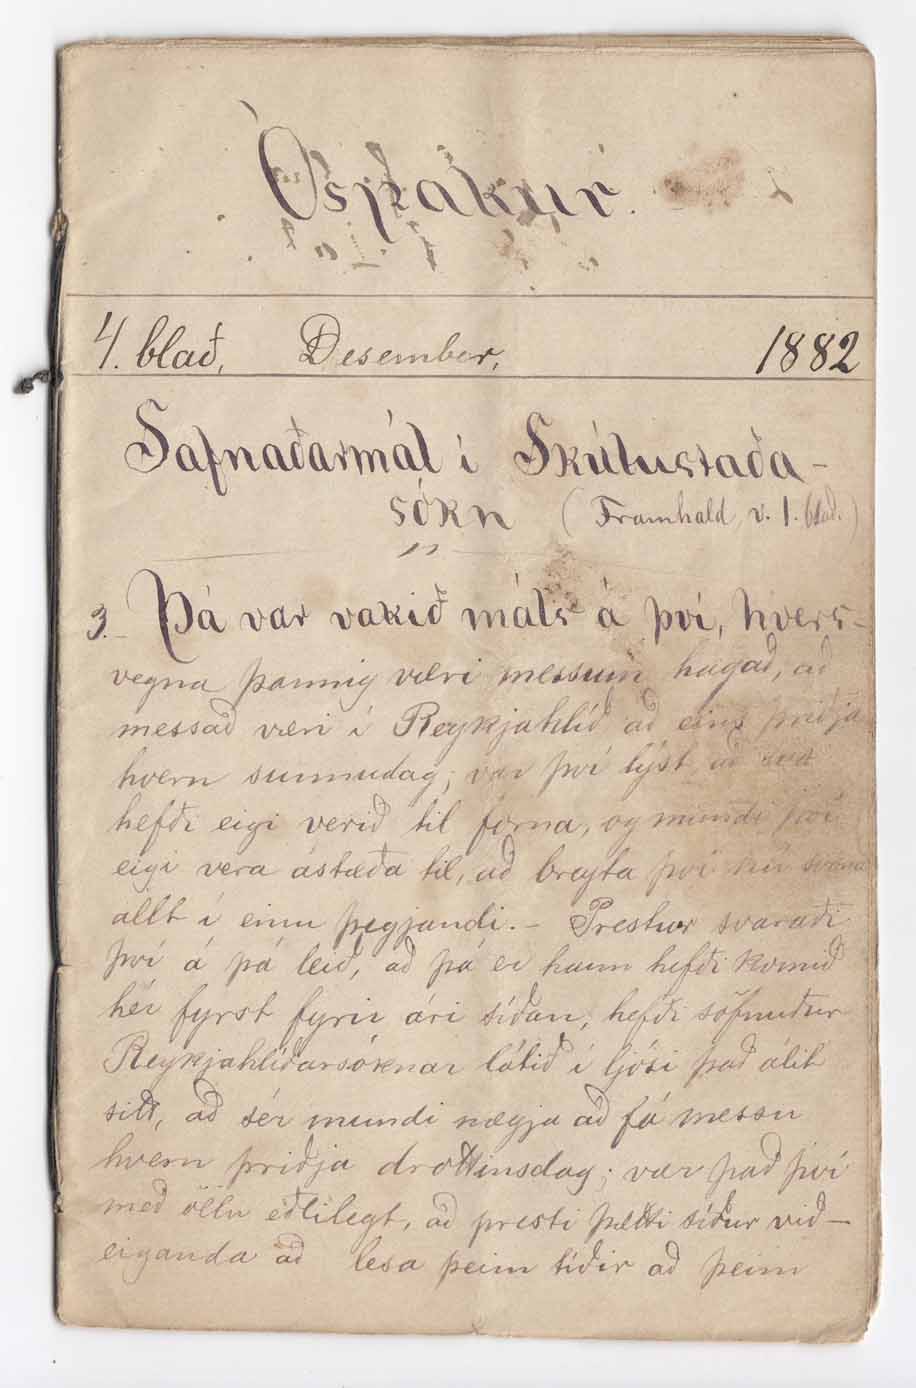 Óspakur.
4. blað, Desember, 1882
Safnaðarmál í Skútustaða-
sókn (Framhald, v. 1. blað.)
3. Þá var vakið máls á því, hvers-
vegna þannig væri messum hagað, að
messað væri í Reykjahlíð að eins þriðja
hvern sunnudag; var því lýst, að svo
hefði eigi verið til forna, og mundi því
eigi vera ástæða til, að breyta því nú
allt í einu þegjandi. – Prestur svaraði
því á þá leið, að þá er hann hefði komið
hér fyrst fyrir ári síðan, hefði söfnuður
Reykjahlíðarsóknar látið í ljósi það álit
sitt, að sér mundi nægja að fá messu
hvern þriðja drottinsdag; var það því
með öllu eðlilegt, að presti þætti síður við-
eiganda að lesa þeim tíðir að þeim